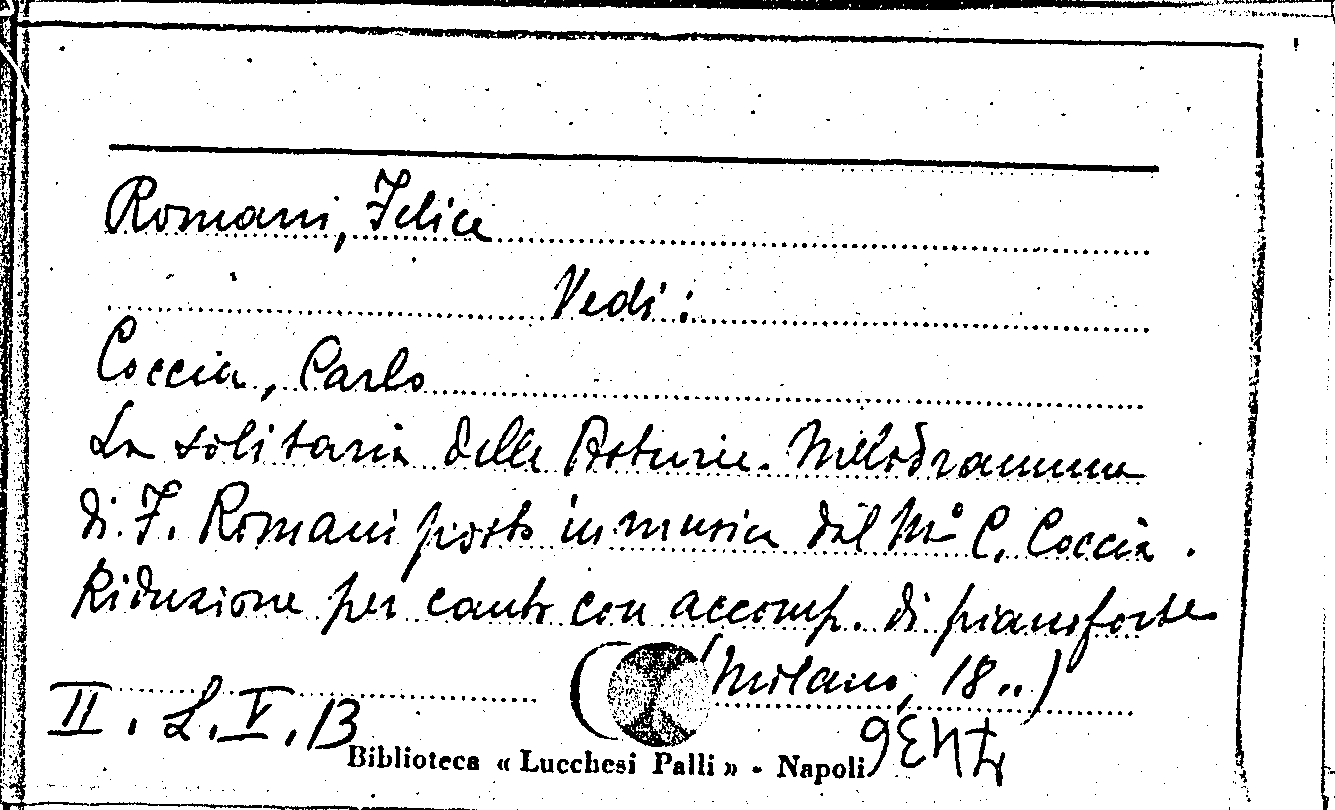 Romani, Felice
Vedi:
Coccia, Carlo
La solitaria delle Asturie. Melodramma
di F. Romani posto in musica dal M° C. Coccia.
Riduzione per canto con accomp. di pianoforte
(Milano, 18..)
II. L. V. 13
Biblioteca « Lucchesi Palli » - Napoli